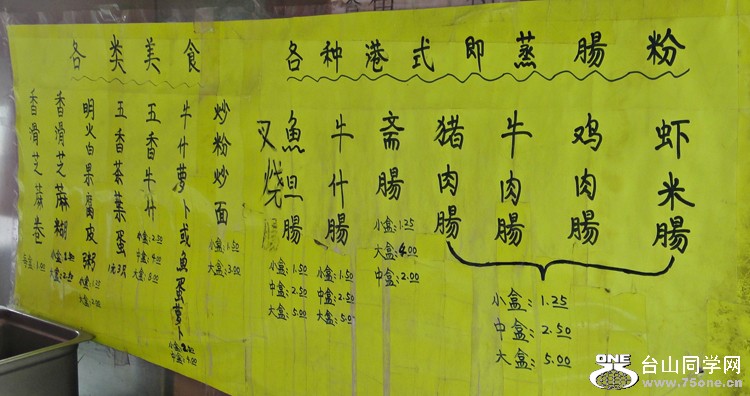 各类美食
各种港式即蒸腸粉
香滑芝麻卷
每盒:1.00
香滑芝麻糊
小盒:1.00
大盒:2.00
明火白果腐皮粥
小盒:1.00
大盒:2.00
五香茶葉蛋
1元3只
五香牛什
小盒:2.00
中盒:4.00
大盒:5.00
牛什萝卜或魚蛋萝卜
小盒:2.00
中盒:4.00
炒粉炒面
小盒:1.50
大盒:3.00
叉烧腸
魚旦腸
小盒:1.50
中盒:2.50
大盒:5.00
牛什腸
小盒:1.50
中盒:2.50
大盒:5.00
斋腸
小盒:1.25
大盒:4.00
中盒:2.00
猪肉腸
牛肉腸
鸡肉腸
虾米腸
小盒:1.25
中盒:2.50
大盒:5.00
ONE
台山同学网
www.75one.cn